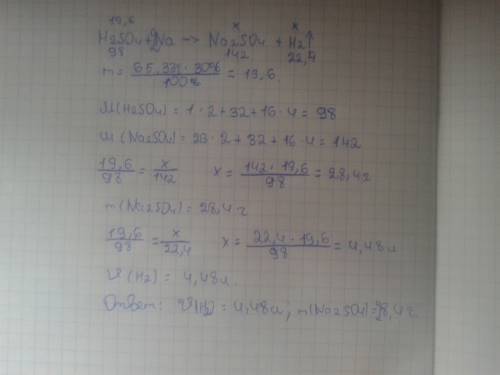 19,6 x x
H2SO4 + 2Na → Na2SO4 + H2↑
98 142 22,4
m = 65,331 · 30% / 100% = 19,6
M(H2SO4) = 1 · 2 + 32 + 16 · 4 = 98
M(Na2SO4) = 23 · 2 + 32 + 16 · 4 = 142
19,6/98 = x/142 x = 142 · 19,6 / 98 = 28,4г
m(Na2SO4) = 28,4 г
19,6/98 = x/22,4 x = 22,4 · 19,6 / 98 = 4,48л
V(H2) = 4,48л.
Ответ: V(H2) = 4,48л; m(Na2SO4) = 28,4г.